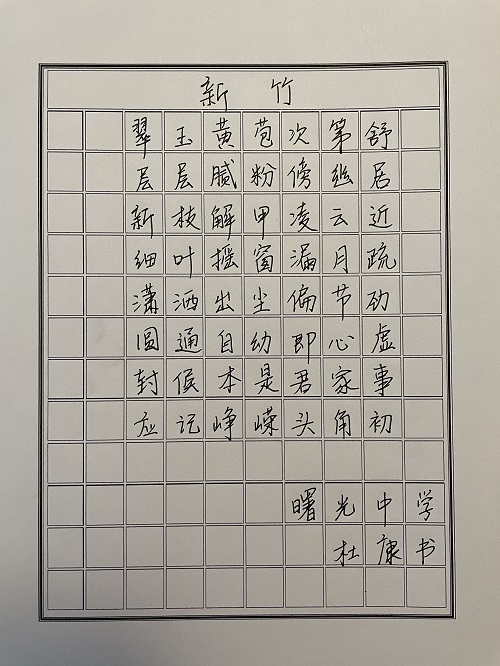 新竹
翠玉黄苞次第舒
层层腻粉傍幽居
新枝解甲凌云近
细叶摇窗漏月疏
潇洒出尘偏节劲
圆通自幼即心虚
封侯本是君家事
应记峥嵘头角初
曙光中学
杜康书